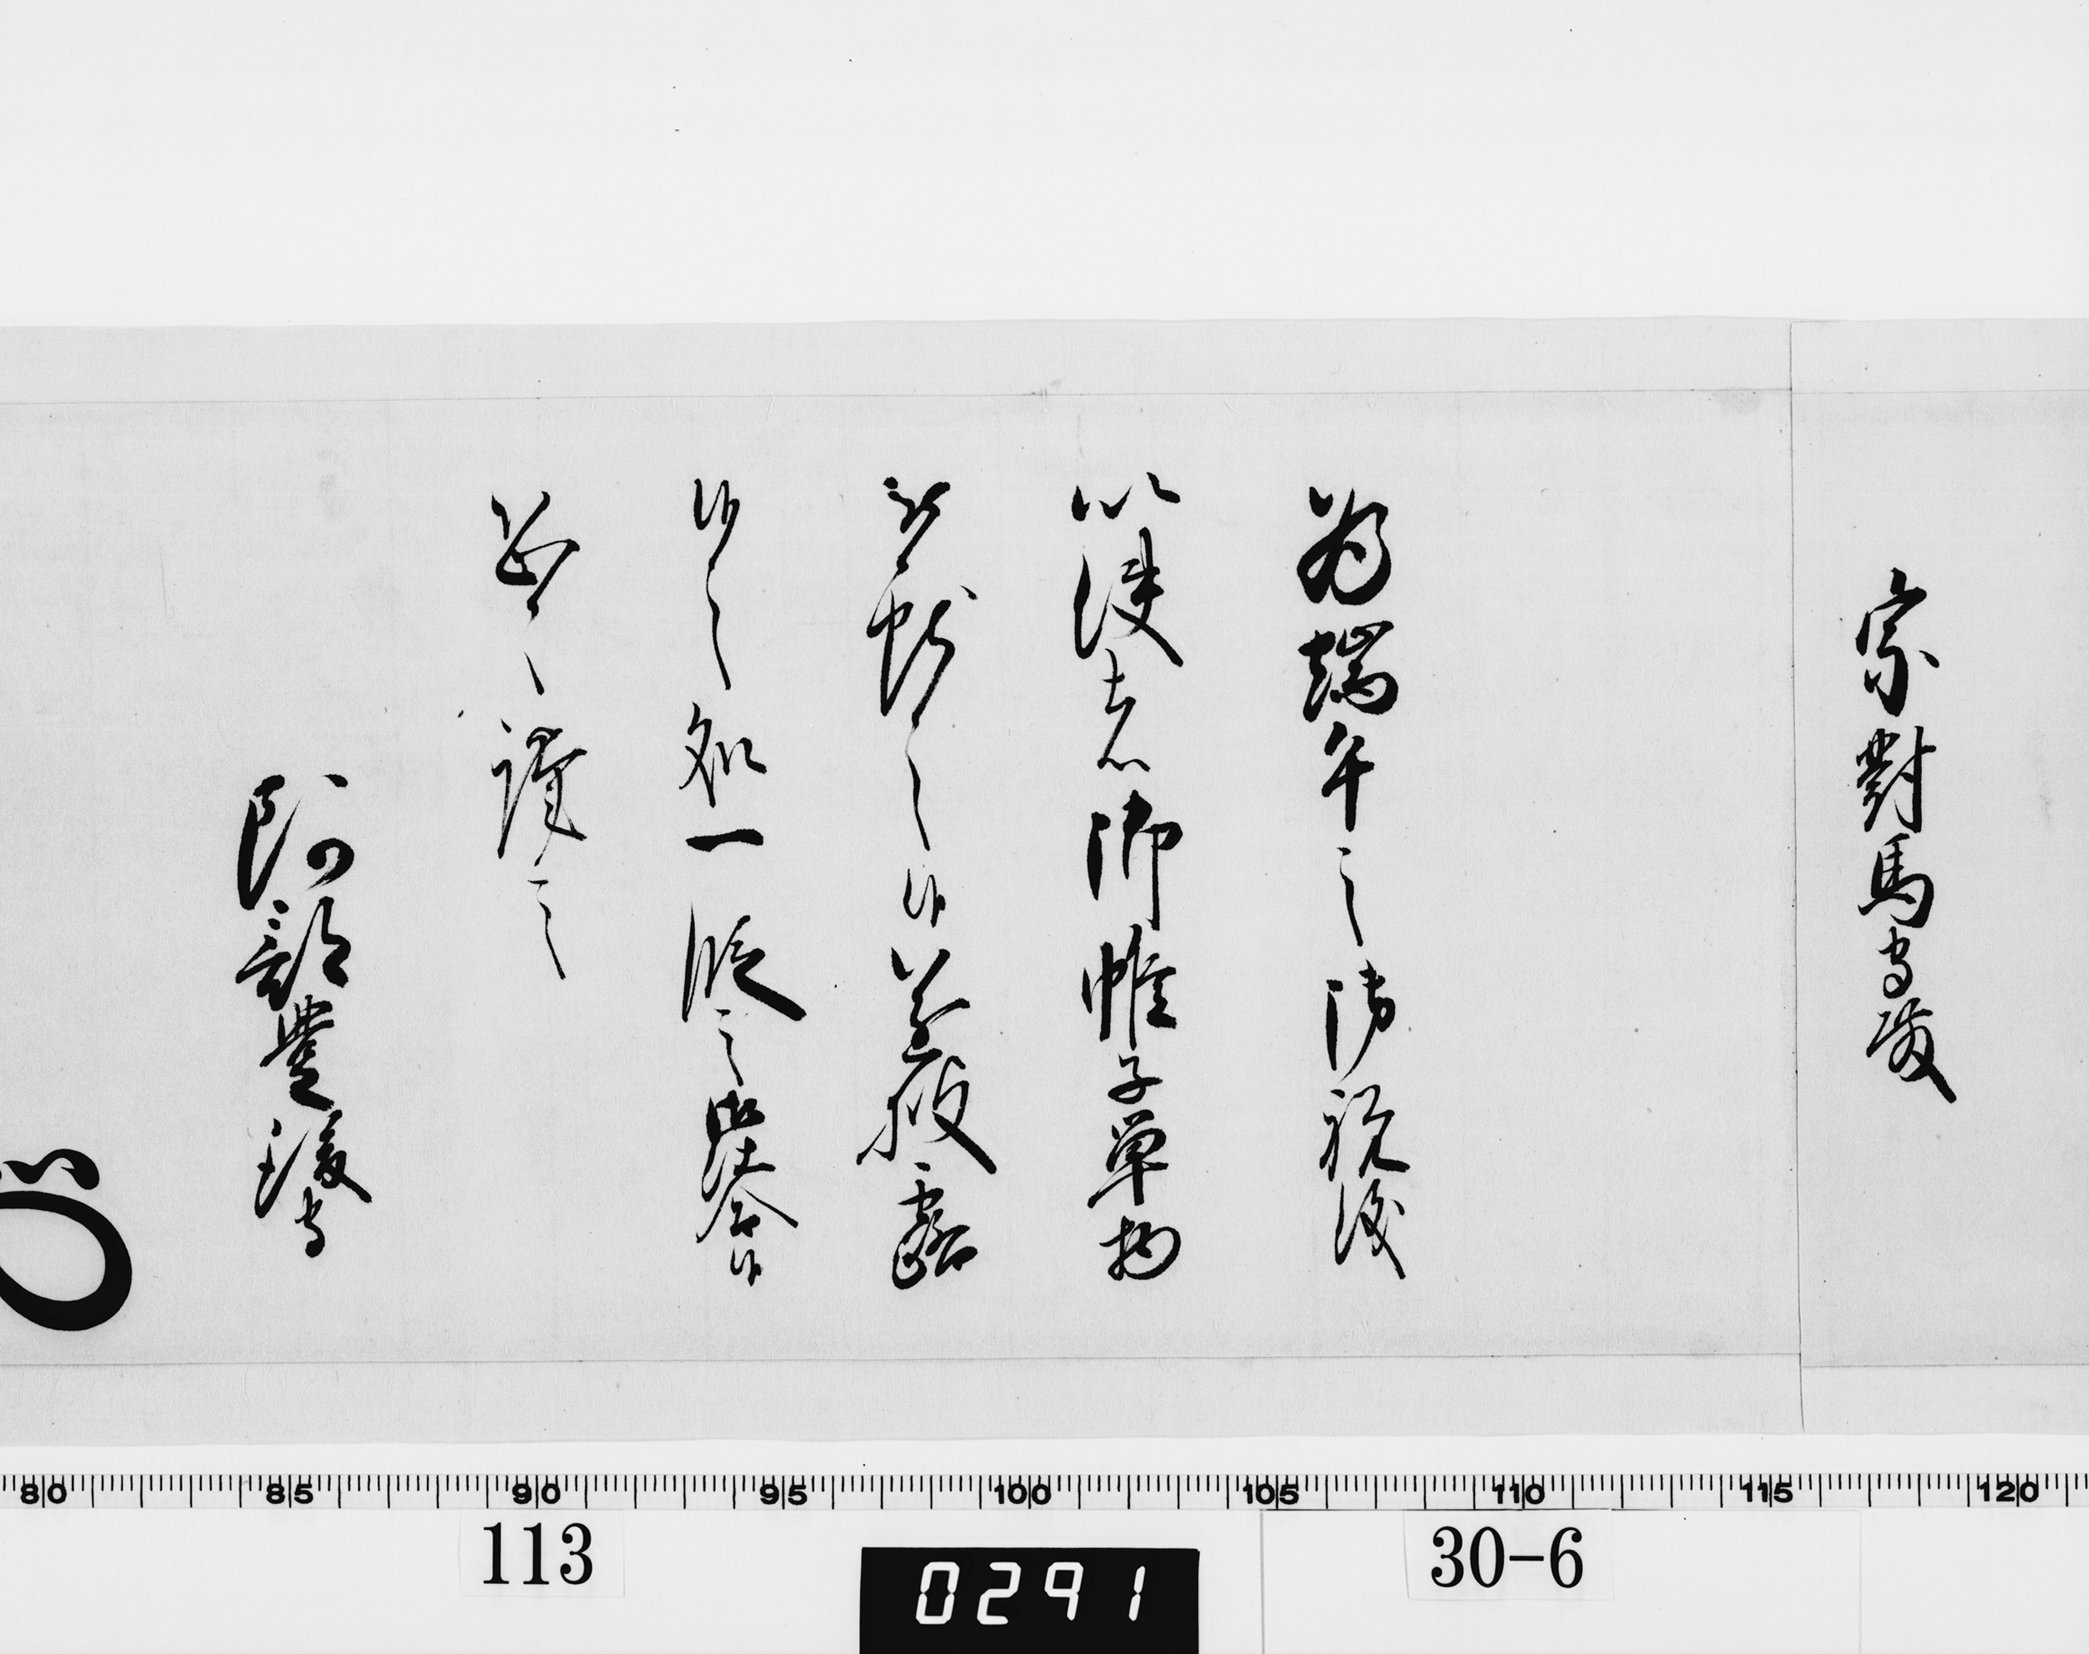 宗對馬守殿
為端午之御祝儀
以使者御帷子単物
被献之候遂披露
候之処一段之御仕合候
恐々謹言
阿部豊後守
80 85 90 95 100 105 110 115 120
113
0291
30-6